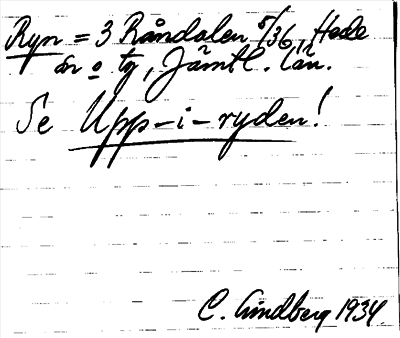 Ryn = 3 Råndalen 5/36, Hede
sn o tg, Jämtl. län.
Se Upp-i-ryden!
C. Lindberg 1934.